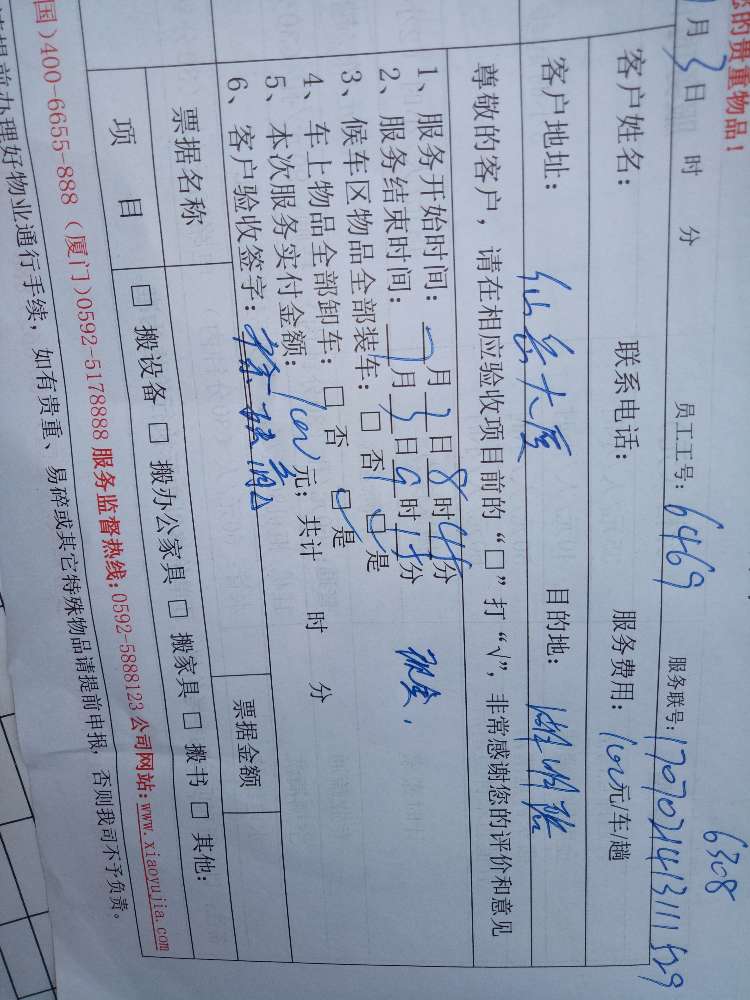 您的贵重物品！
6308
月 3 日 时 分 员工工号：6469 服务联号：
客户姓名： 联系电话： 服务费用：100元/车/趟
客户地址：仙岳大厦 目的地：
尊敬的客户，请在相应验收项目前的“□”打“√”，非常感谢您的评价和意见
1、服务开始时间：7月3日8时45分
2、服务结束时间：7月3日9时15分
3、候车区物品全部装车：□ 否 ☑ 是
4、车上物品全部卸车：□ 否 ☑ 是
5、本次服务实付金额：100元；共计 时 分
6、客户验收签字：
票据名称 票据金额
项 目 □ 搬设备 □ 搬办公家具 □ 搬家具 □ 搬书 □ 其他：
国）400-6655-888（厦门）0592-5178888 服务监督热线：0592-5888123 公司网站：www.xiaoyujia.com
请提前办理好物业通行手续，如有贵重、易碎或其它特殊物品请提前申报，否则我司不予负责。